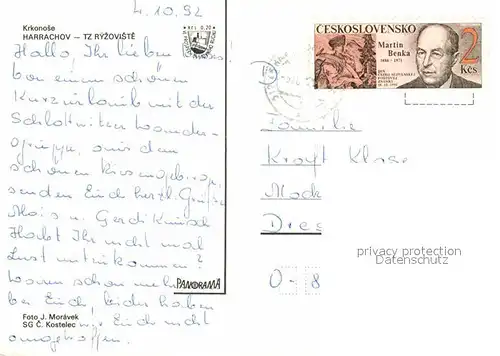 4.10.92
Krkonoše
HARRACHOV — TZ RÝŽOVIŠTĚ
Kčs 0,20
Hallo, Ihr lieben
von einem schönen
Kurzurlaub mit der
Schlottwitzer Wander-
gruppe, aus dem
schönen Riesengebirge,
senden Euch herzl. Grüße
Alois u. Gerdi
Habt Ihr nicht mal
Lust mitzukommen?
Waren schon mehr
bei Euch, leider haben
wir Euch nicht
angetroffen.
PANORAMA
Foto J. Morávek
SG Č. Kostelec
ČESKOSLOVENSKO
Martin
Benka
1888 - 1971
DEN
ČESKOSLOVENSKÉ
POŠTOVNÍ
ZNÁMKY
18. 12.
2
Kčs
Familie
Klaus
Dres
0-8
privacy protection
Datenschutz